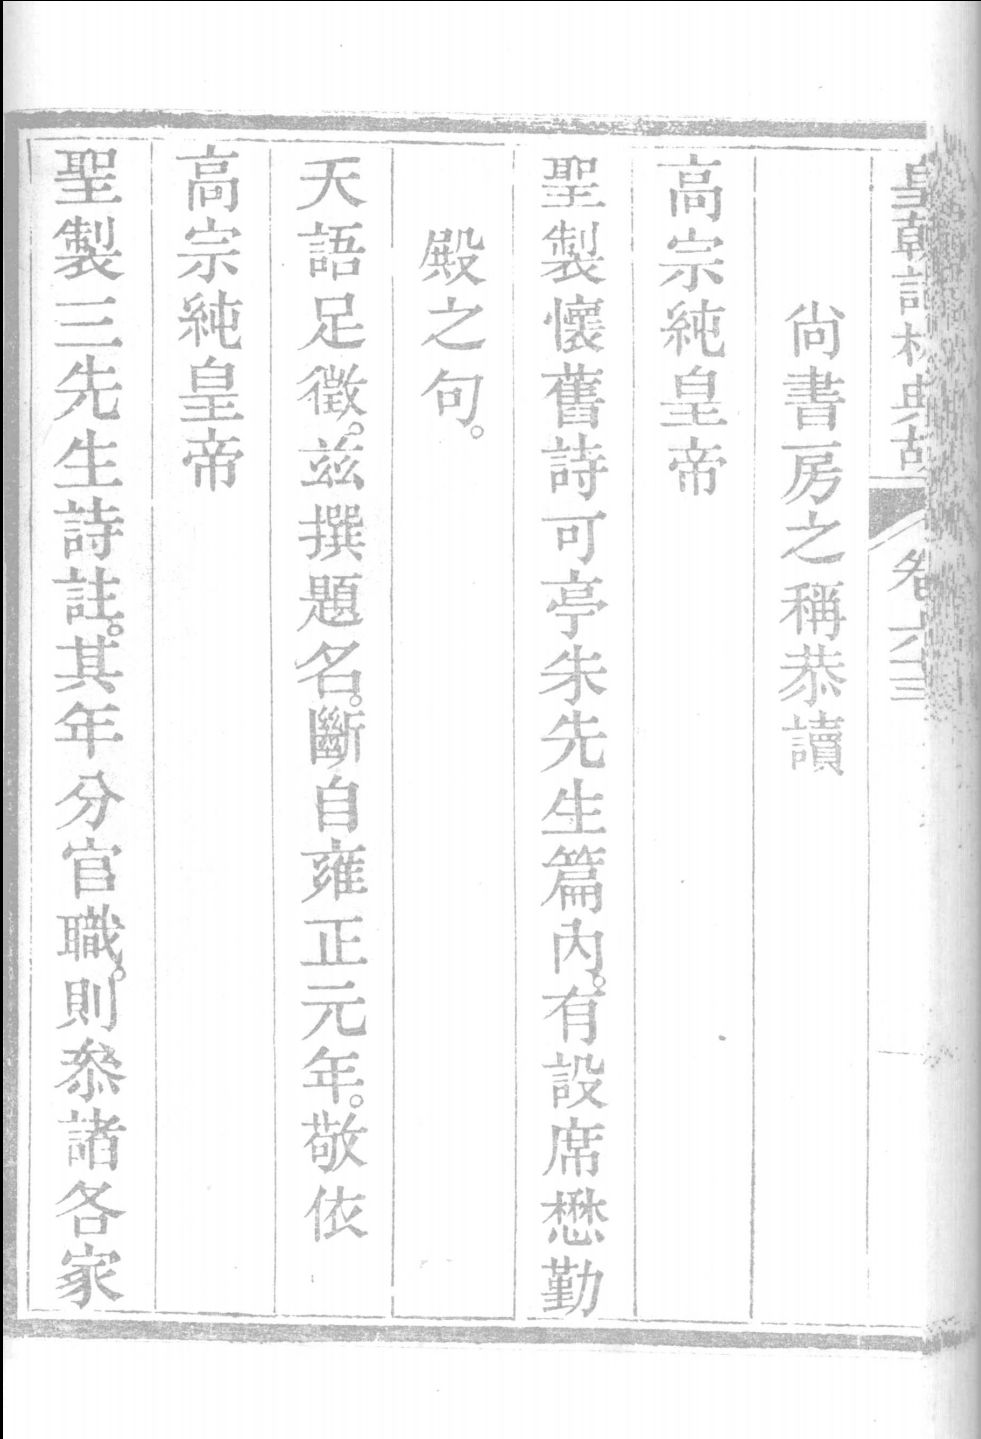 皇朝詞林典故 卷六三
尙書房之稱恭讀
高宗純皇帝
聖製懷舊詩可亭朱先生篇內。有設席懋勤
殿之句。
天語足徵。茲撰題名。斷自雍正元年。敬依
高宗純皇帝
聖製三先生詩註。其年分官職。則叅諸各家